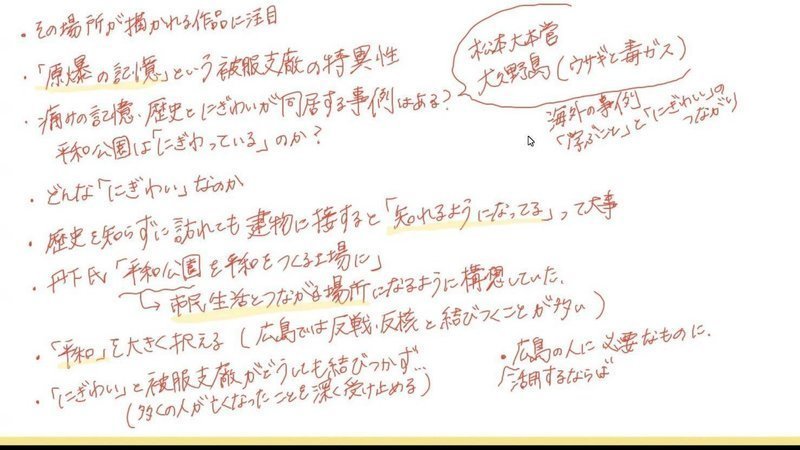 ・その場所が描かれる作品に注目
・「原爆の記憶」という被服支廠の特異性
・痛みの記憶・歴史とにぎわいが同居する事例はある?
平和公園は「にぎわっている」のか?
松本大本営
大久野島(ウサギと毒ガス)
海外の事例
「学ぶこと」と「にぎわい」の
つながり
・どんな「にぎわい」なのか
・歴史を知らずに訪れても建物に接すると「知れるようになってる」って大事
・丹下氏「平和公園を平和をつくる工場に」
↳市民生活とつながる場所になるように構想していた。
・「平和」を大きく択える(広島では反戦・反核と結びつくことが多い)
・「にぎわい」と被服支廠がどうしても結びつかず…
(多くの人が亡くなったことを深く受け止める)
・広島の人に必要なものに。
「活用するならば